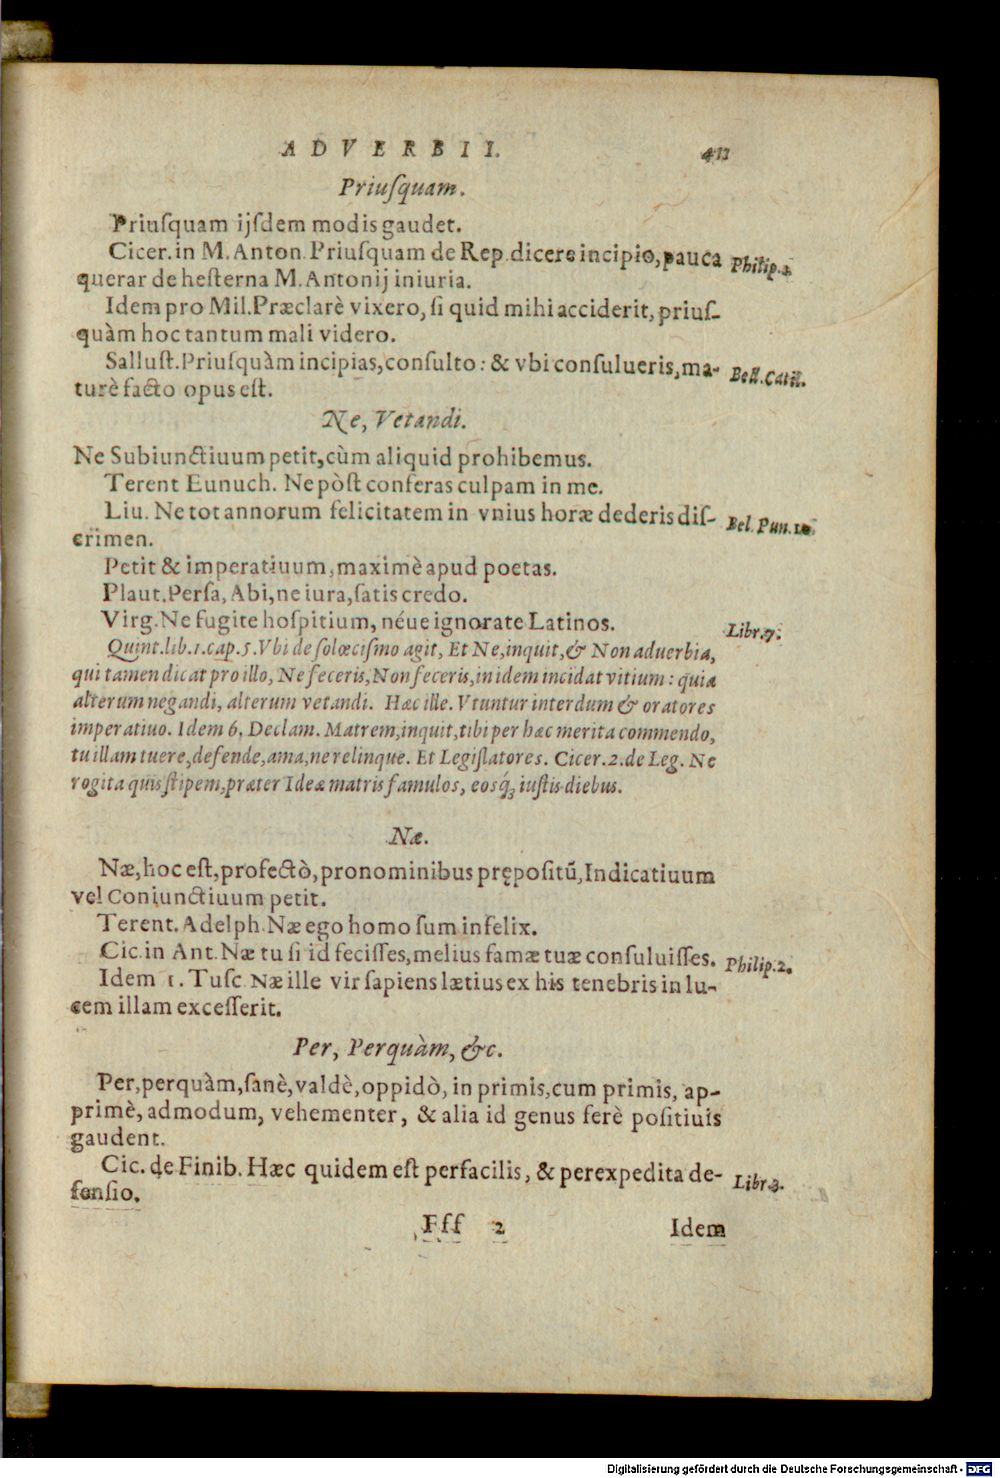 ADVERBII. 411
Priuſquam.
Priuſquam ijſdem modis gaudet.
Cicer. in M. Anton. Priuſquam de Rep. dicere incipio, pauca Philip.1.
querar de heſterna M. Antonij iniuria.
Idem pro Mil. Præclarè vixero, ſi quid mihi acciderit, priuſ-
quàm hoc tantum mali videro.
Salluſt. Priuſquàm incipias, conſulto: & vbi conſulueris, ma- Bell. Catil.
turè facto opus eſt.
Ne, Vetandi.
Ne Subiunctiuum petit, cùm aliquid prohibemus.
Terent Eunuch. Ne pòſt conferas culpam in me.
Liu. Ne tot annorum felicitatem in vnius horæ dederis diſ- Bel. Pun.10.
crimen.
Petit & imperatiuum, maximè apud poetas.
Plaut. Perſa, Abi, ne iura, ſatis credo.
Virg. Ne fugite hoſpitium, néue ignorate Latinos. Libr.7.
Quint. lib.1. cap.5. Vbi de ſolœciſmo agit, Et Ne, inquit, & Non aduerbia,
qui tamen dicat pro illo, Ne feceris, Non feceris, in idem incidat vitium: quia
alterum negandi, alterum vetandi. Hæc ille. Vtuntur interdum & oratores
imperatiuo. Idem 6. Declam. Matrem, inquit, tibi per hæc merita commendo,
tu illam tuere, defende, ama, ne relinque. Et Legiſlatores. Cicer. 2. de Leg. Ne
rogita quis ſtipem, præter Ideæ matris famulos, eosq́ꝫ iuſtis diebus.
Næ.
Næ, hoc eſt, profectò, pronominibus prępoſitũ, Indicatiuum
vel Coniunctiuum petit.
Terent. Adelph. Næ ego homo ſum infelix.
Cic. in Ant. Næ tu ſi id feciſſes, melius famæ tuæ conſuluiſſes. Philip.2.
Idem 1. Tuſc. Næ ille vir ſapiens lætius ex his tenebris in lu-
cem illam exceſſerit.
Per, Perquàm, &c.
Per, perquàm, ſanè, valdè, oppidò, in primis, cum primis, ap-
primè, admodum, vehementer, & alia id genus ferè poſitiuis
gaudent.
Cic. de Finib. Hæc quidem eſt perfacilis, & perexpedita de- Libr.3.
fenſio.
Fff 2 Idem
Digitalisierung gefördert durch die Deutsche Forschungsgemeinschaft - DFG